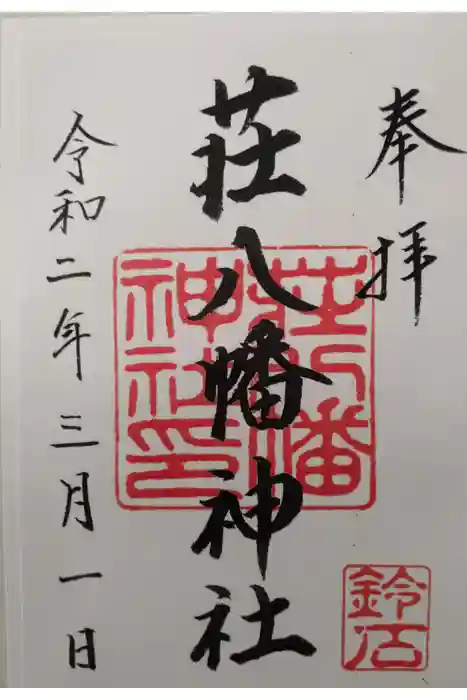 奉拝
荘八幡神社
荘八幡神社印
鈴石
令和二年三月一日